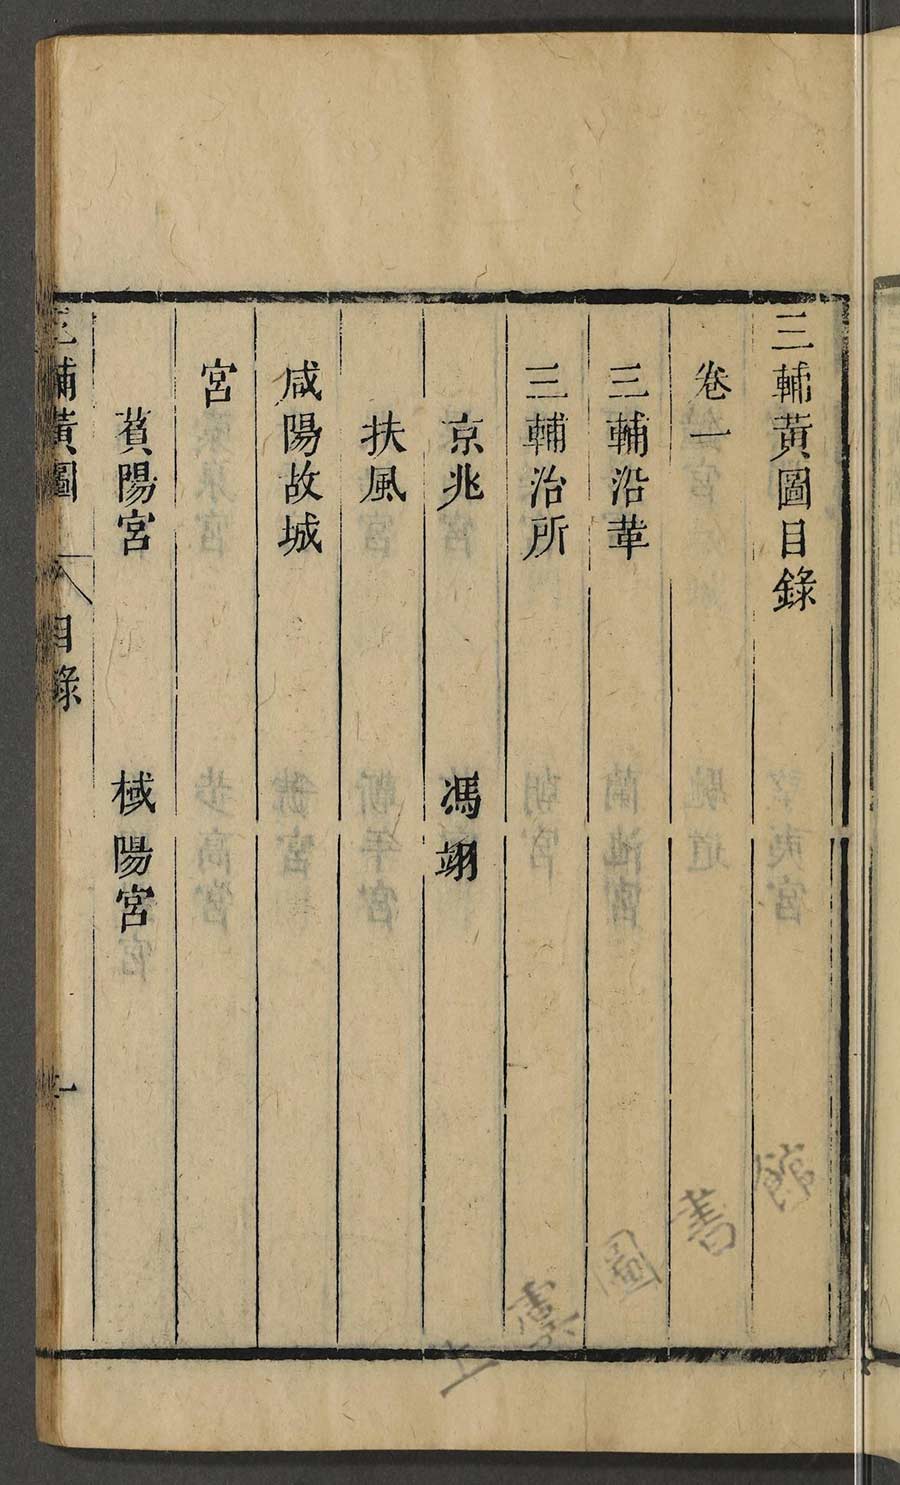 三輔黃圖目錄
卷一
三輔沿革
三輔治所
京兆　馮翊
扶風
咸陽故城
宮
萯陽宮　棫陽宮
三輔黃圖　目錄　一
上虞圖書館